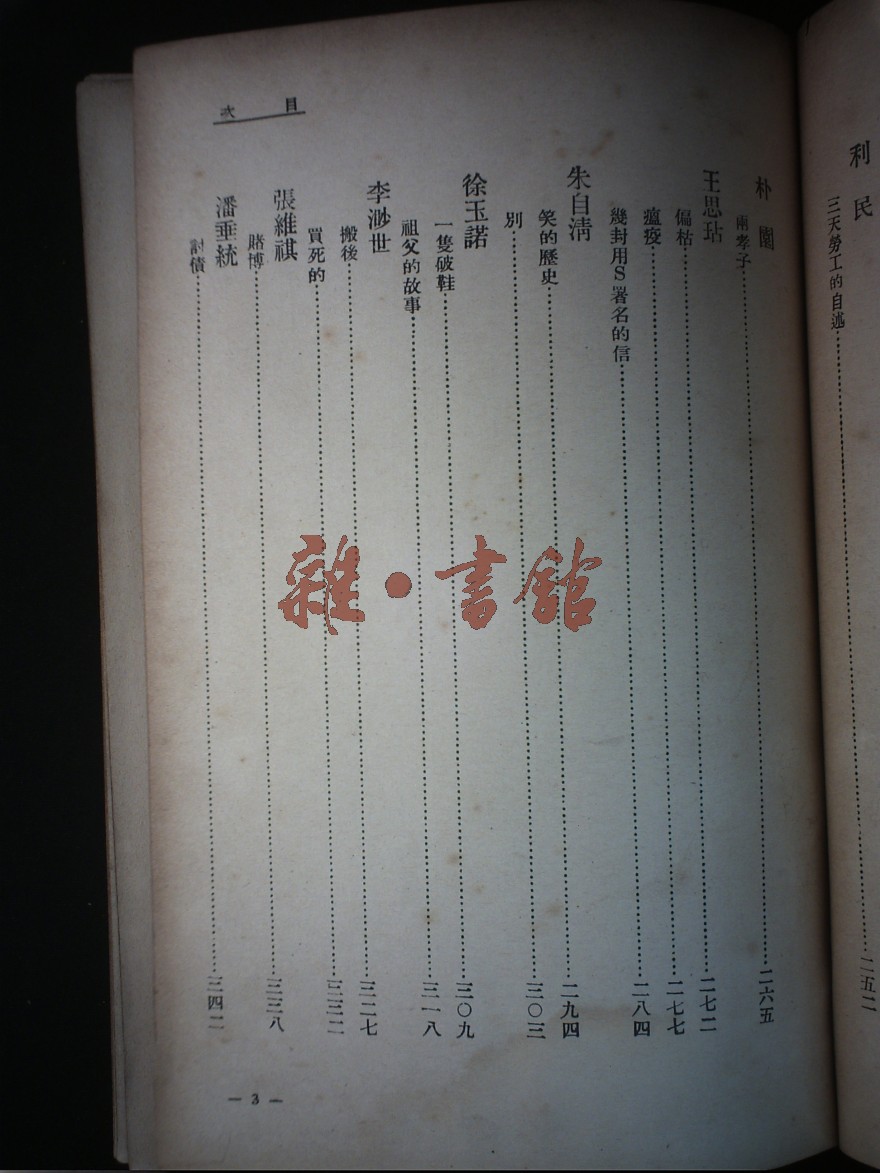 利民
三天勞工的自述……二五二
目次
朴園
兩孝子……二六五
王思玷
偏枯……二七二
瘟疫……二七七
幾封用S署名的信……二八四
朱自清
笑的歷史……二九四
別……三〇三
徐玉諾
一隻破鞋……三〇九
祖父的故事……三一八
李渺世
搬後……三二七
買死的……三三二
張維祺
賭博……三三八
潘垂統
討債……三四二
— 3 —
雜·書館